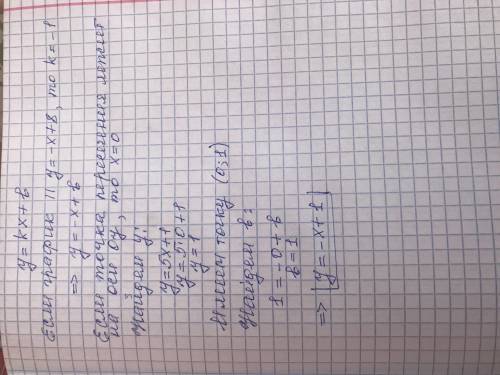 y=kx+b
Если график || y=-x+8, то k=-1
=> y=-x+b
Если точка пересечения лежит
на оси Oy, то x=0
Найдем y:
y=5x+1
y=5·0+1
y=1
Имеем точку (0;1)
Найдем b:
1=-0+b
b=1
=> y=-x+1